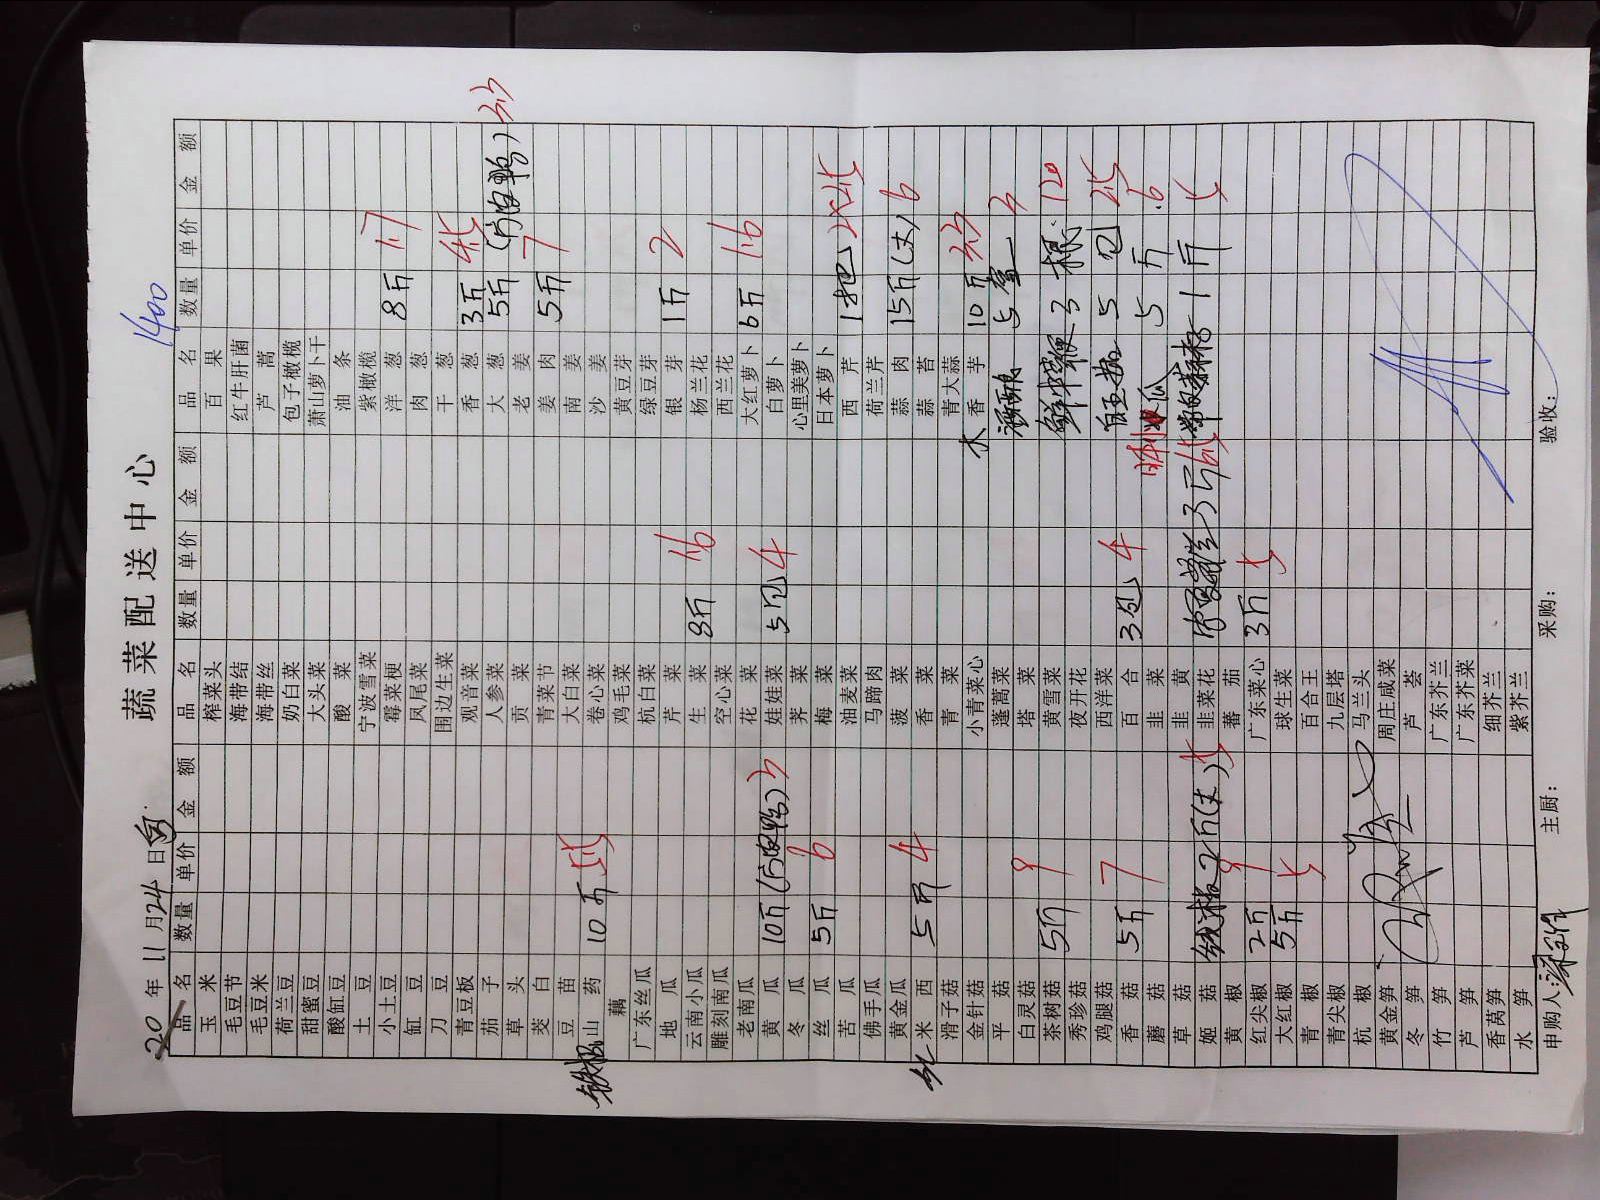 蔬菜配送中心
20 年 11 月 24 日 1400
品名 数量 单价 金额 品名 数量 单价 金额 品名 数量 单价 金额
玉米 榨菜头 百果
毛豆节 海带结 红牛肝菌
毛豆米 海带丝 芦蒿
荷兰豆 奶白菜 包子橄榄
甜蜜豆 大头菜 萧山萝卜干
酸缸豆 酸菜 油条
土豆 宁波雪菜 紫橄榄
小土豆 霉菜梗 洋葱 8斤 1.7
缸豆 凤尾菜 肉葱
刀豆 围边生菜 干葱
青豆板 观音菜 香葱 3斤 4.5
茄子 人参菜 大葱 5斤(片皮鸭) 3.3
草头 贡菜 老姜
茭白 青菜节 姜肉 5斤 7
豆苗 大白菜 南姜
铁棍山药 10斤 5.5 卷心菜 沙姜
藕 鸡毛菜 黄豆芽
广东丝瓜 杭白菜 绿豆芽
地瓜 芹菜 银芽 1斤 2
云南小瓜 生菜 8斤 1.6 杨兰花
雕刻南瓜 空心菜 西兰花
老南瓜 花菜 大红萝卜 6斤 1.6
黄瓜 10斤(片皮鸭) 3 娃娃菜 5包 4 白萝卜
冬瓜 荠菜 心里美萝卜
丝瓜 5斤 6 梅菜 日本萝卜
苦瓜 油麦菜 西芹 1把
佛手瓜 马蹄肉 荷兰芹
黄金瓜 菠菜 蒜肉 15斤(大) 6
米西 5斤 4 香菜 蒜苔
滑子菇 青菜 青大蒜
金针菇 小青菜心 香芋 10斤 3.3
平菇 蓬蒿菜 酒酿 5盒 3
白灵菇 塔菜
茶树菇 5斤 9 黄雪菜 鲜牛鞭 3根 120
秀珍菇 夜开花
鸡腿菇 西洋菜 5包 25
香菇 5斤 7 百合 3包 4
蘑菇 韭菜 瓜 5斤 6
草菇 韭黄
姬菇 韭菜花 3斤 1斤 5
黄椒 2斤(大) 5 番茄
红尖椒 2斤 9 广东菜心 3斤 5
大红椒 5斤 5 球生菜
青椒 百合王
青尖椒 九层塔
杭椒 马兰头
黄金笋 周庄咸菜
冬笋 芦荟
竹笋 广东芥兰
芦笋 广东芥菜
香莴笋 细芥兰
水笋 紫芥兰
申购人: 主厨: 采购: 验收: